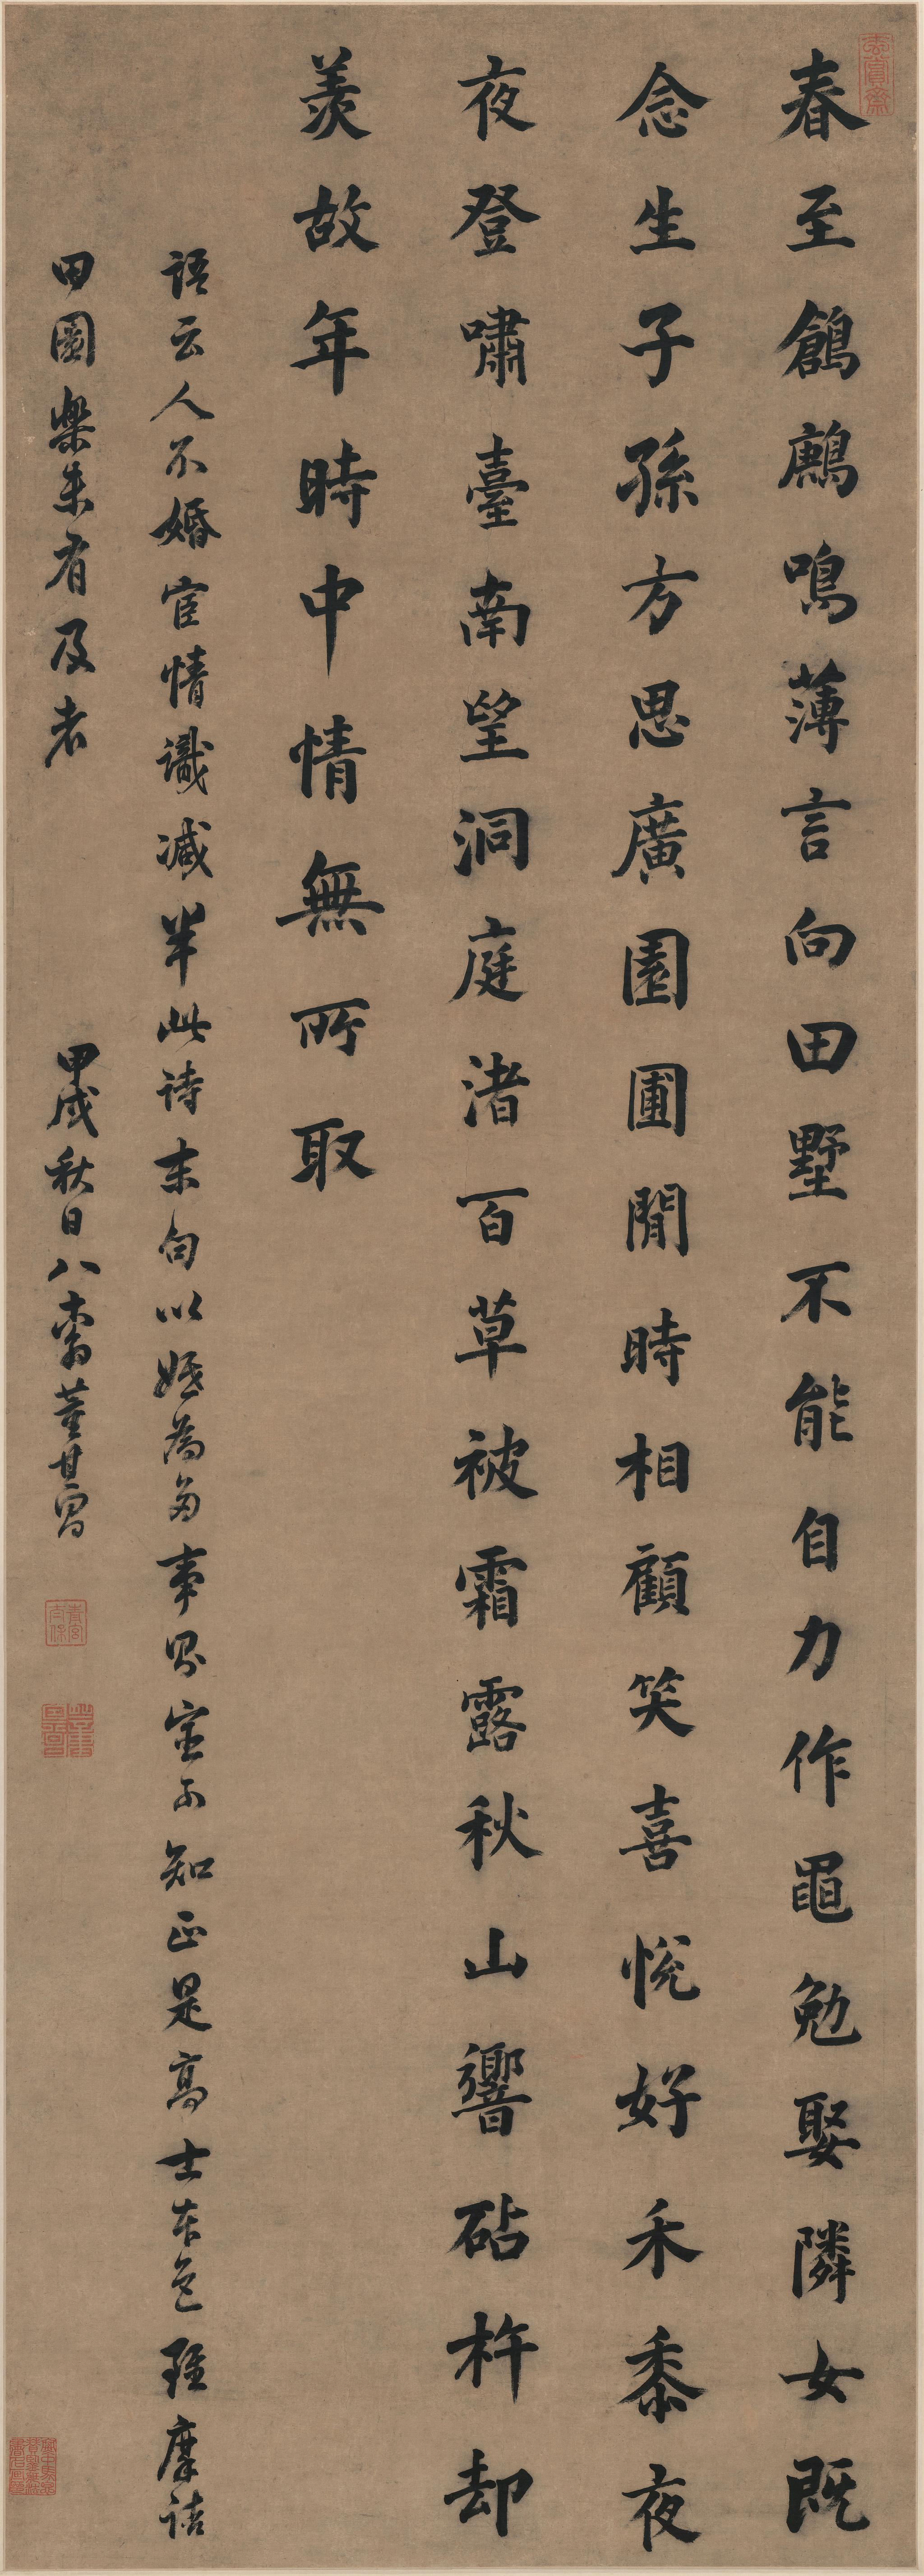 玄賞齋
春至鶬鶊鳴薄言向田墅不能自力作黽勉娶隣女既
念生子孫方思廣園圃閒時相顧笑喜悅好禾黍夜
夜登嘯臺南望洞庭渚百草被霜露秋山響砧杵却
羨故年時中情無所取
語云人不婚宦情識减半此詩末句以婚為多事不知正是高士本色雖摩詰
田園樂未有及者 甲戌秋日八十翁董其昌
青宮太保
董其昌